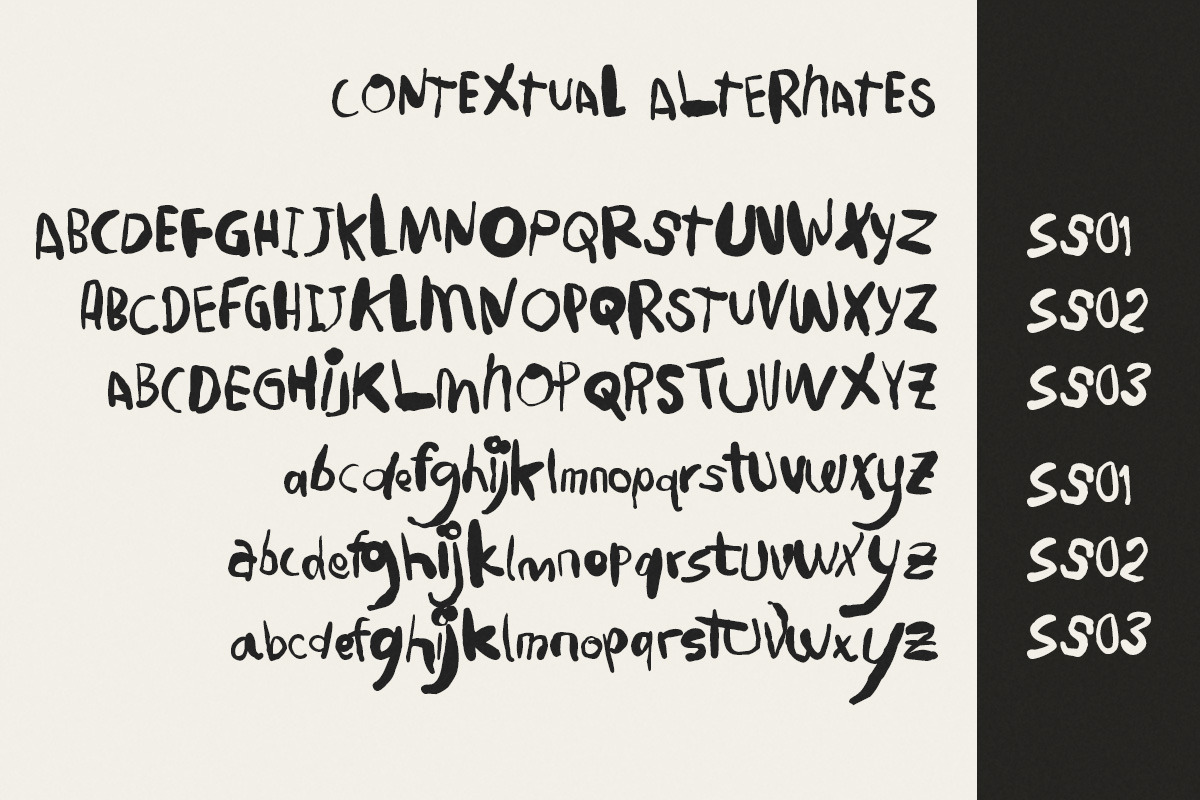 CONTEXTUAL ALTERnATES
ABCDEFGHIJKLMNOPQRSTUVWXYZ SS01
ABCDEFGHIJKLMNOPQRSTUVWXYZ SS02
ABCDEGHijKLmnOPQRSTUVWXYZ SS03
abcdefghijklmnopqrstuvwxyz SS01
abcdefghijklmnopqrstuvwxyz SS02
abcdefghijklmnopqrstuvwxyz SS03